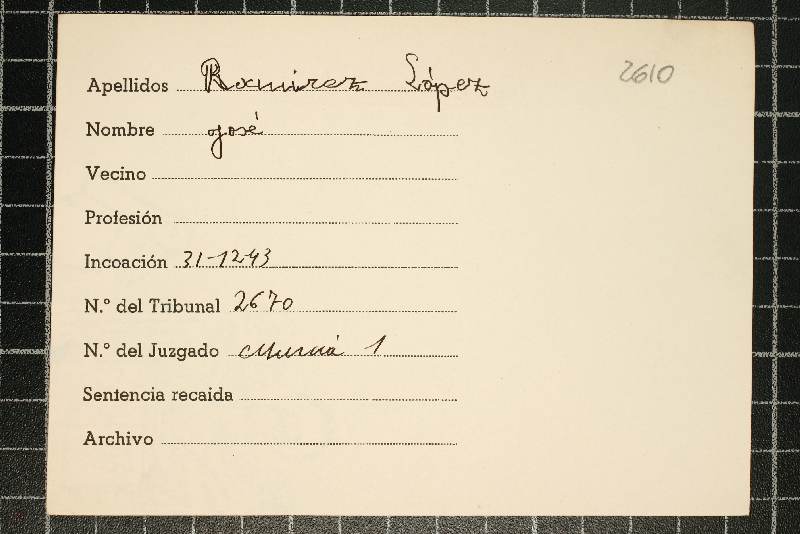 2610
Apellidos Ramirez López
Nombre José
Vecino
Profesión
Incoación 31-12-43
N.º del Tribunal 2670
N.º del Juzgado Murcia 1
Sentencia recaida
Archivo